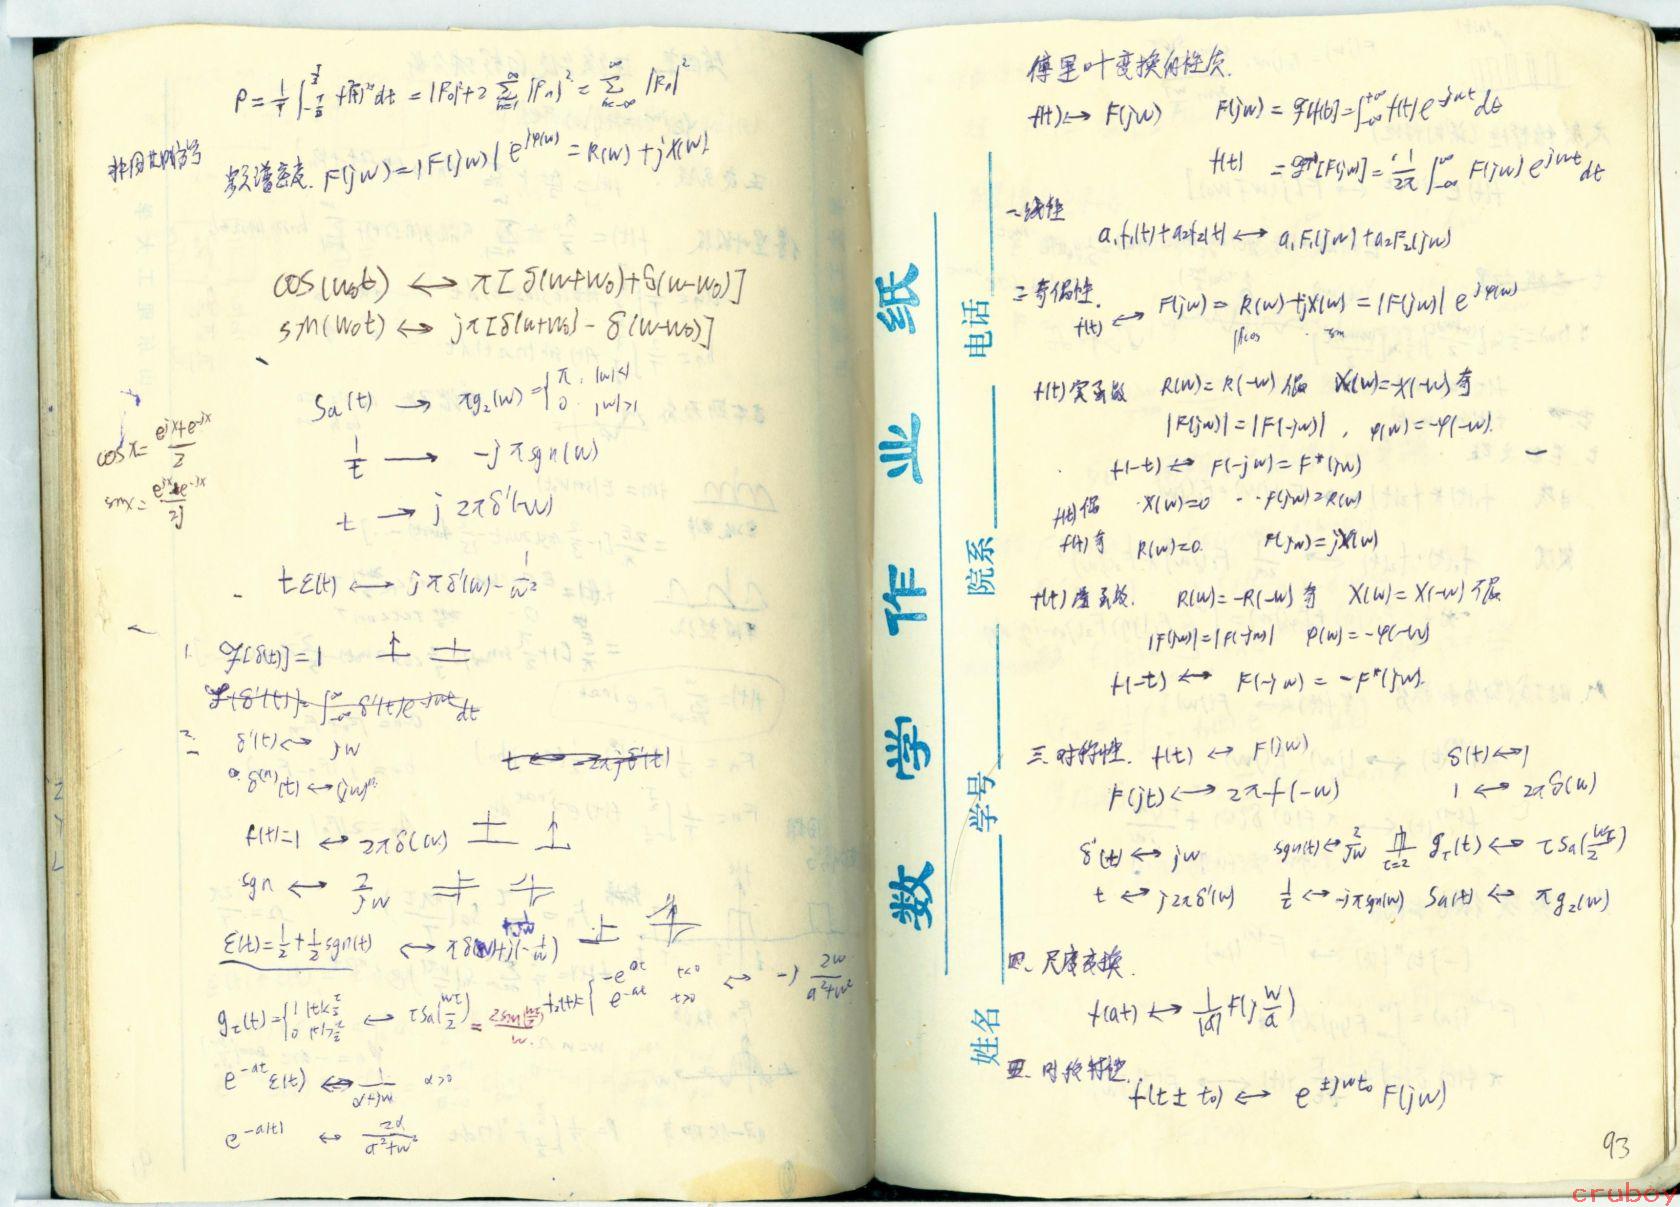 P = 1/T ∫_{-T/2}^{T/2} f(t)² dt = |F₀|² + 2 ∑_{n=1}^{∞} |Fₙ|² = ∑_{n=-∞}^{∞} |Fₙ|²
非周期信号
频谱密度. F(jw) = |F(jw)| e^{jφ(w)} = R(w) + jX(w)
cos(w₀t) ↔ π[δ(w+w₀)+δ(w-w₀)]
sin(w₀t) ↔ jπ[δ(w+w₀) - δ(w-w₀)]
Sa(t) → πg₂(w) = { π, |w|<1
0, |w|>1
cosx = (e^{jx}+e^{-jx})/2
1/t → -jπsgn(w)
sinx = (e^{jx}-e^{-jx})/2j
t → j2πδ'(w)
tε(t) ↔ jπδ'(w) - 1/w²
1. ℱ[δ(t)] = 1
ℱ[δ'(t)] = ∫_{-∞}^{∞} δ'(t)e^{-jwt}dt
2. δ'(t) ↔ jw
t ↔ 2πjδ'(t)
δ⁽ⁿ⁾(t) ↔ (jw)ⁿ
f(t)=1 ↔ 2πδ(w)
sgn ↔ 2/jw
+1/jw
ε(t) = 1/2 + 1/2 sgn(t) ↔ πδ(w)+j(-1/w)
f₂(t)= { -e^{at} t<0
e^{-at} t>0 ↔ -j 2w/(a²+w²)
g_τ(t) = { 1 |t|<τ/2
0 |t|>τ/2 ↔ τSa(wτ/2) = 2sin(wτ/2)/w
e^{-at}ε(t) ↔ 1/(α+jw) α>0
e^{-a|t|} ↔ 2α/(α²+w²)
数学作业纸
姓名 学号 院系 电话
傅里叶变换的性质.
f(t) ↔ F(jw) F(jw) = ℱ[f(t)] = ∫_{-∞}^{+∞} f(t) e^{-jwt} dt
f(t) = ℱ⁻¹[F(jw)] = 1/2π ∫_{-∞}^{∞} F(jw) e^{jwt} dt
一.线性
a₁f₁(t)+a₂f₂(t) ↔ a₁F₁(jw)+a₂F₂(jw)
二.奇偶性.
f(t) ↔ F(jw) = R(w)+jX(w) = |F(jw)| e^{jφ(w)}
∫fcos sin
f(t)实函数 R(w)=R(-w) 偶 X(w)=-X(-w) 奇
|F(jw)| = |F(-jw)| , φ(w)=-φ(-w).
f(-t) ↔ F(-jw) = F*(jw)
f(t)偶 X(w)=0 F(jw)=R(w)
f(t)奇 R(w)=0. F(jw)=jX(w)
f(t)虚函数. R(w)=-R(-w) 奇 X(w)=X(-w) 偶
|F(jw)|=|F(-jw)| φ(w)=-φ(-w)
f(-t) ↔ F(-jw) = -F*(jw).
三.对称性. f(t) ↔ F(jw) δ(t)↔1
F(jt) ↔ 2πf(-w) 1 ↔ 2πδ(w)
δ'(t) ↔ jw sgn(t)↔2/jw τ=2 g_τ(t) ↔ τSa(wτ/2)
t ↔ j2πδ'(w) 1/t ↔ -jπsgn(w) Sa(t) ↔ πg₂(w)
四.尺度变换.
f(at) ↔ 1/|a| F(j w/a)
五.时移特性.
f(t±t₀) ↔ e^{±jwt₀} F(jw)
93
cruboy